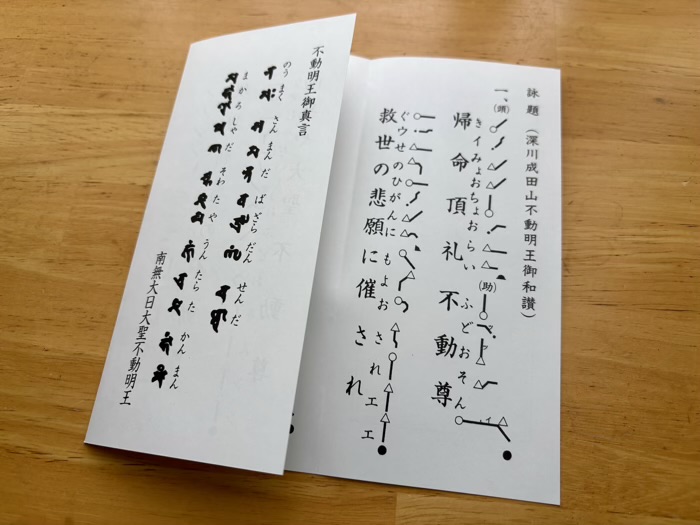 詠題(深川成田山不動明王御和讃)
一、(頭) (助)
きイみょおちょおらい ふどおそん
帰命頂礼不動尊
ぐウせのひがんに もよおされエエ
救世の悲願に催され
不動明王御真言
のうまく さんまんだ ばざらだん せんだ
まかろしゃだ そわたや うんたらた かんまん
南無大日大聖不動明王